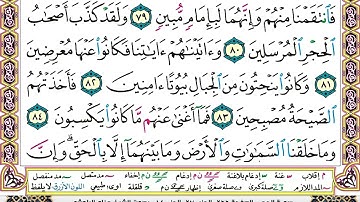 فَٱنتَقَمْنَا مِنْهُمْ وَإِنَّهُمَا لَبِإِمَامٍ مُّبِينٍ ٧٩ وَلَقَدْ كَذَّبَ أَصْحَٰبُ
ٱلْحِجْرِ ٱلْمُرْسَلِينَ ٨٠ وَءَاتَيْنَٰهُمْ ءَايَٰتِنَا فَكَانُوا۟ عَنْهَا مُعْرِضِينَ
٨١ وَكَانُوا۟ يَنْحِتُونَ مِنَ ٱلْجِبَالِ بُيُوتًا ءَامِنِينَ ٨٢ فَأَخَذَتْهُمُ
ٱلصَّيْحَةُ مُصْبِحِينَ ٨٣ فَمَآ أَغْنَىٰ عَنْهُم مَّا كَانُوا۟ يَكْسِبُونَ ٨٤
وَمَا خَلَقْنَا ٱلسَّمَٰوَٰتِ وَٱلْأَرْضَ وَمَا بَيْنَهُمَآ إِلَّا بِٱلْحَقِّ وَإِنَّ